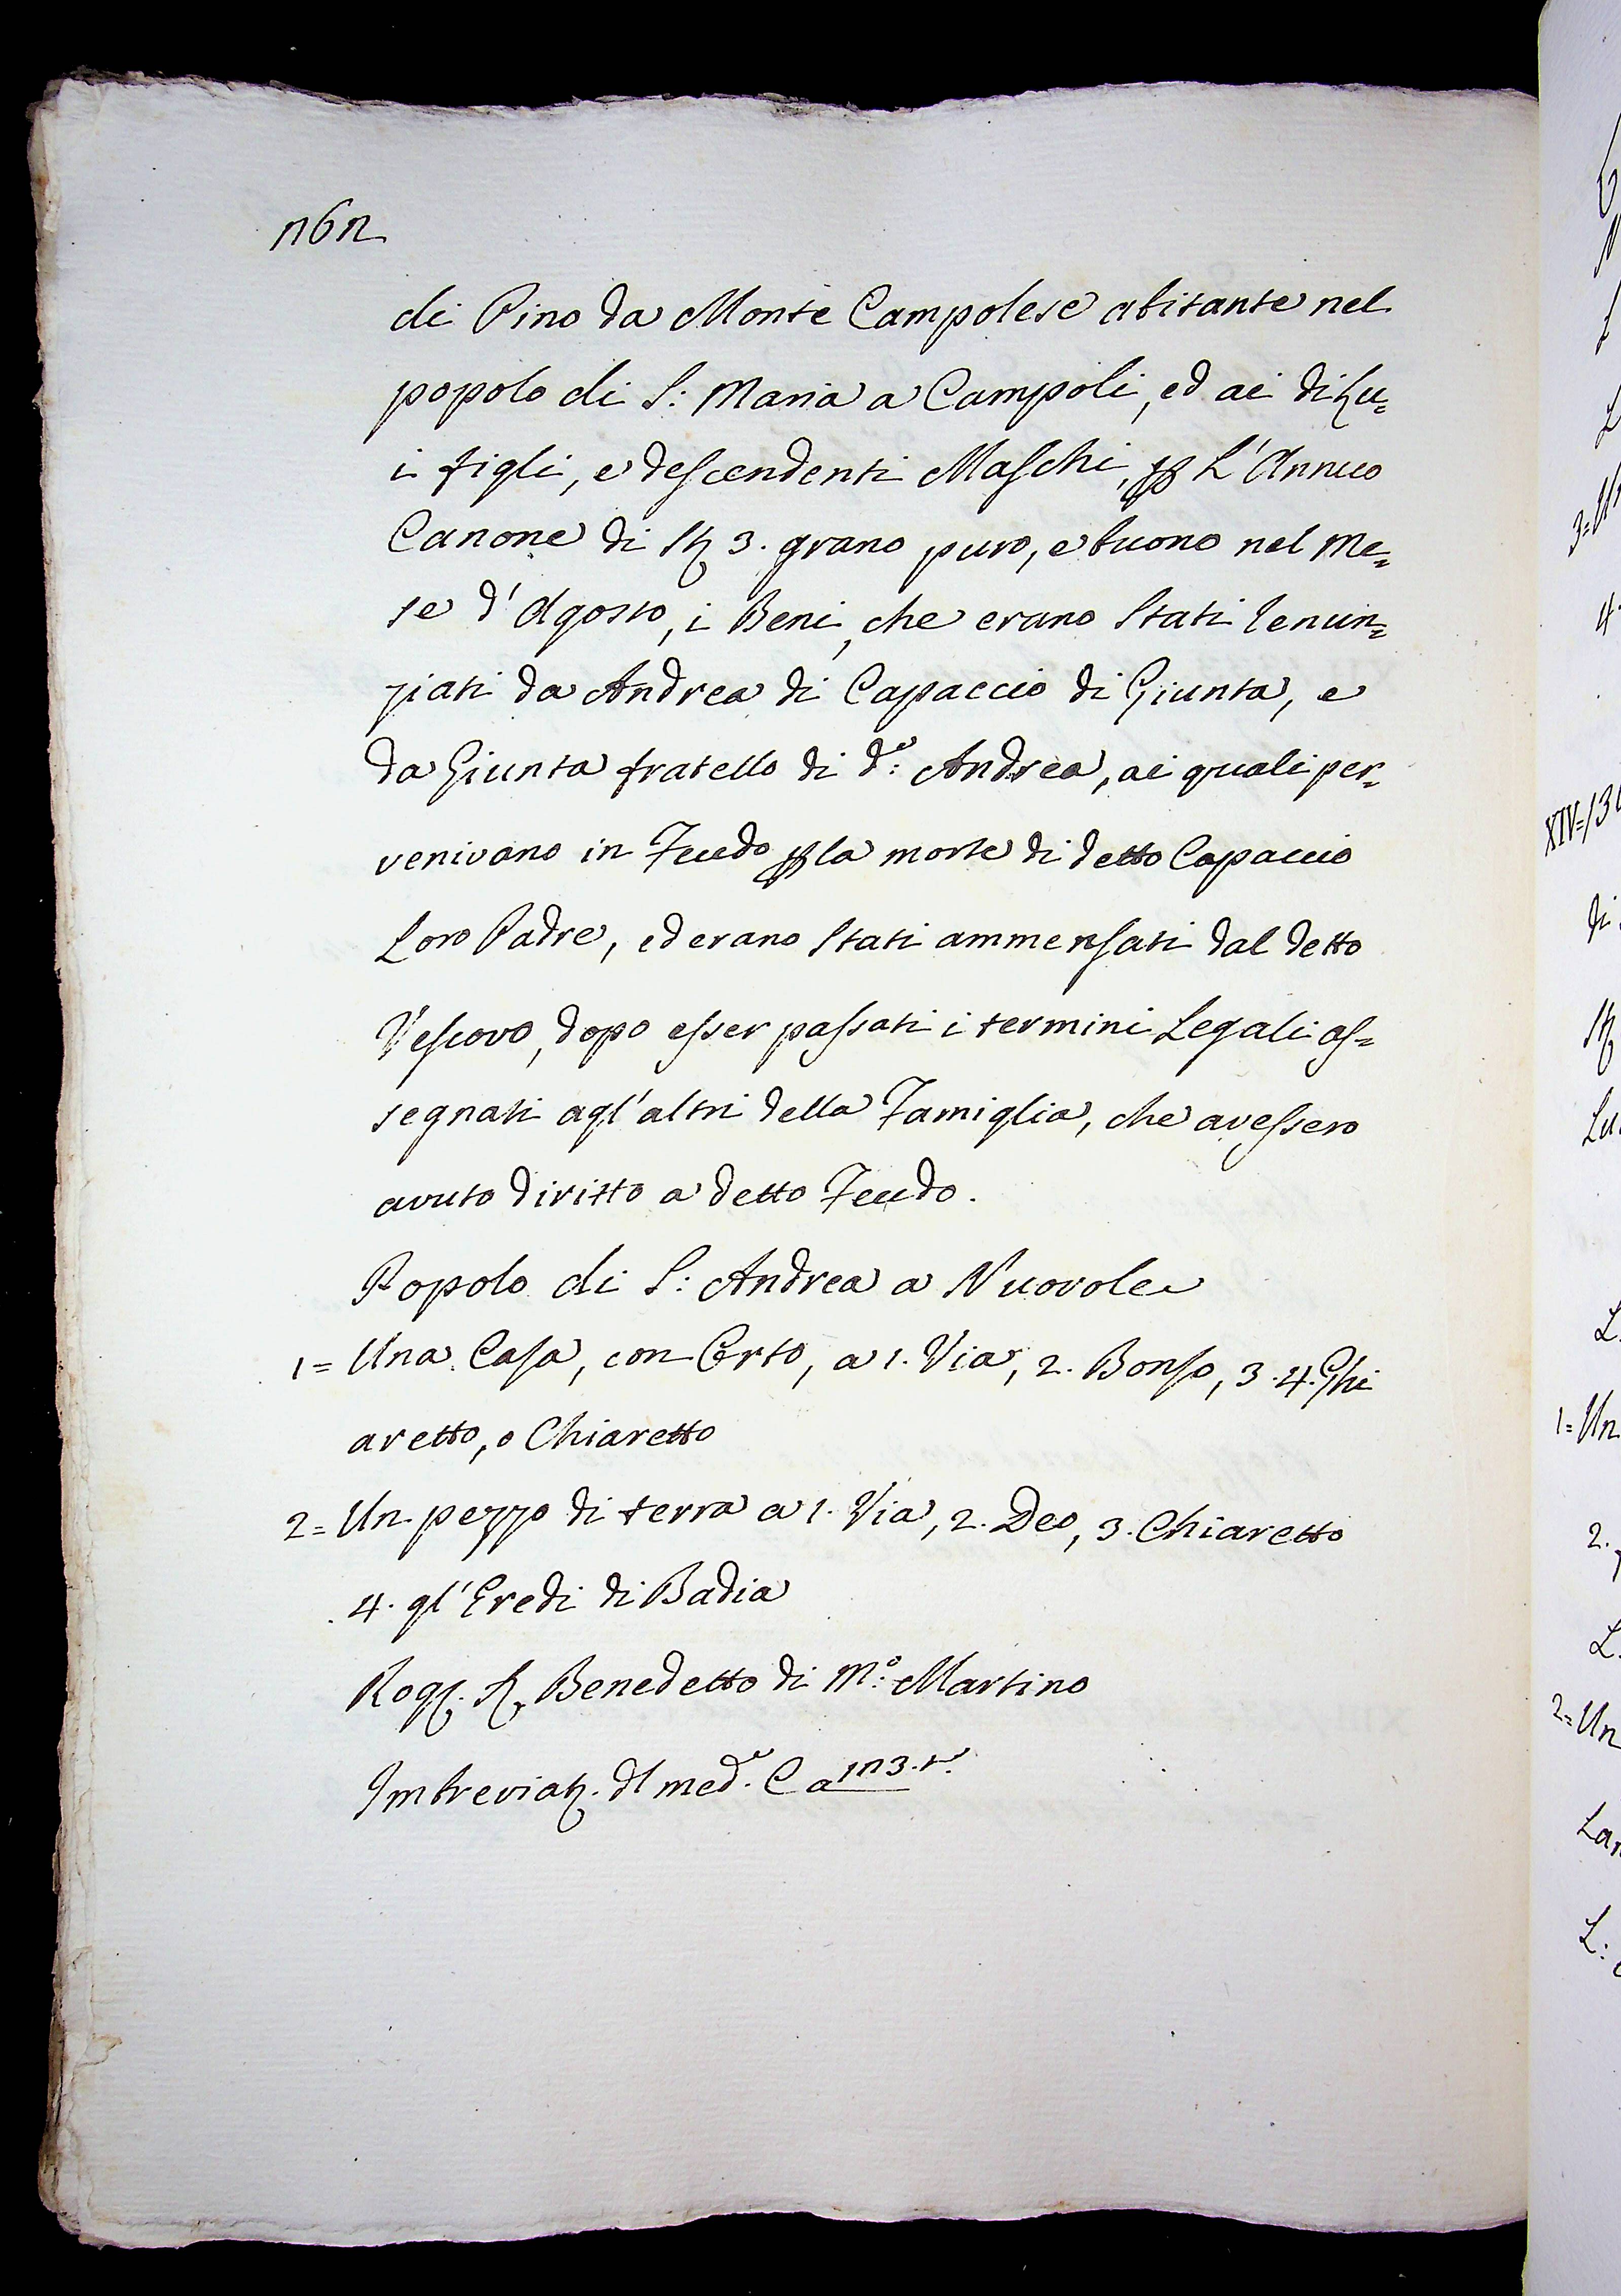 n6n
di Pino da Monte Campolese abitante nel
popolo di S: Maria a Campoli, ed ai di Lu=
i figli, e descendenti Maschi, p L'Annuo
Canone di St 3. grano puro, e buono nel Me=
se d'Agosto, i Beni, che erano Stati Renun=
ziati da Andrea di Capaccio di Giunta, e
da Giunta fratello di d:o Andrea, ai quali per=
venivano in Feudo p la morte di detto Capaccio
Loro Padre, ed erano Stati ammensati dal detto
Vescovo, dopo esser passati i termini Legali as=
segnati agl'altri della Famiglia, che avessero
avuto diritto a detto Feudo.
Popolo di S: Andrea a Nuovole
1= Una Casa, con Orto, a 1. Via, 2. Bonso, 3. 4. Ghi
aretto, o Chiaretto
2= Un pezzo di terra a 1. Via, 2. Deo, 3. Chiaretto
4. gl'Eredi di Badia
Rog. S. Benedetto di M:o Martino
Imbreviaz. dl med.o C a 1n3.t.
3= Un
XIV=/13
di
St
1= Un
2.
2= Un